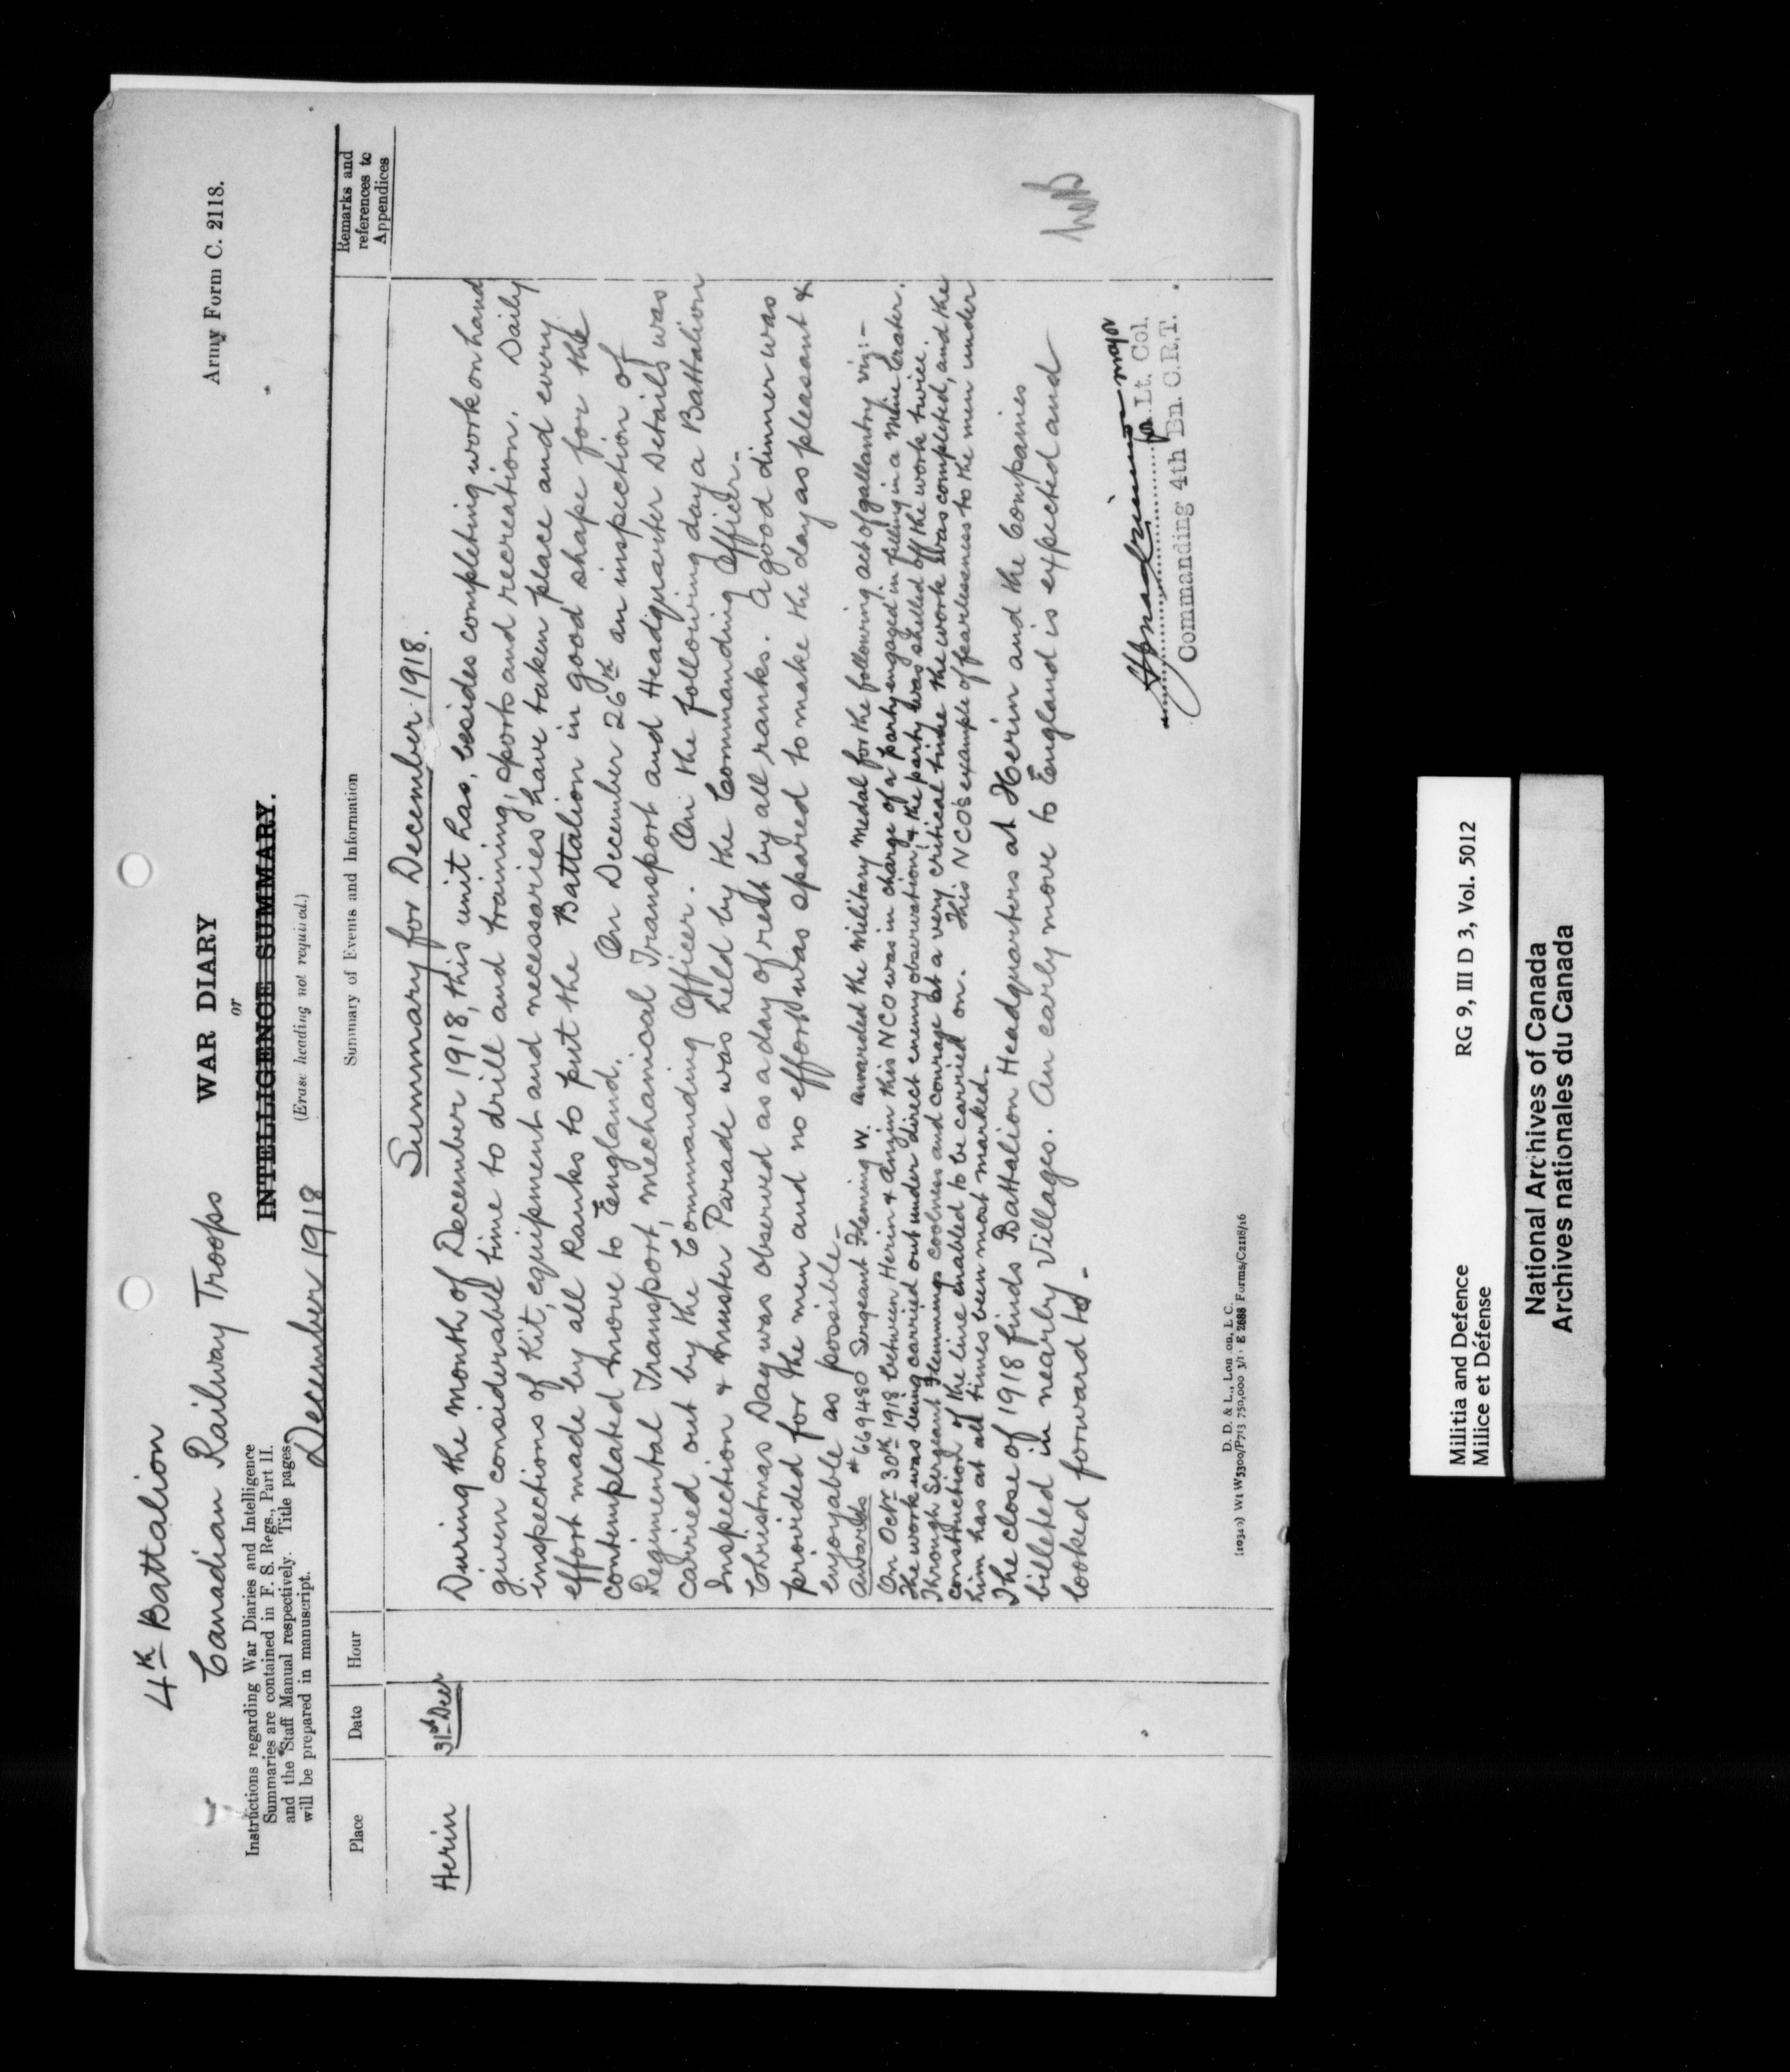 4th Battalion
Canadian Railway Troops
Army Form C. 2118.
WAR DIARY
or
INTELLIGENCE SUMMARY.
(Erase heading not required.)
Instructions regarding War Diaries and Intelligence
Summaries are contained in F. S. Regs., Part II.
and the Staff Manual respectively. Title pages
will be prepared in manuscript.
December 1918
Place
Date
Hour
Summary of Events and Information
Remarks and
references to
Appendices
Summary for December 1918.
Herin
31st Decr
During the month of December 1918, this unit has, besides completing work on hand
given considerable time to drill and training, sports and recreation. Daily
inspections of Kit, equipment and necessaries have taken place and every
effort made by all Ranks to put the Battalion in good shape for the
contemplated move to England. On December 26th an inspection of
Regimental Transport, Mechanical Transport and Headquarter Details was
carried out by the Commanding Officer. On the following day a Battalion
Inspection & Muster Parade was held by the Commanding Officer.
Christmas Day was observed as a day of rest by all ranks. A good dinner was
provided for the men and no effort was spared to make the day as pleasant &
enjoyable as possible.
Awards # 669480 Sergeant Fleming W. awarded the Military Medal for the following act of gallantry viz:-
On Octr 30th 1918 between Herin & Anzin this NCO was in charge of a party engaged in filling in a Mine Crater.
The work was being carried out under direct enemy observation, & the party was shelled off the work twice.
Through Sergeant Flemings coolness and courage at a very critical time the work was completed, and the
construction of the line enabled to be carried on. This NCO's example of fearlessness to the men under
him has at all times been most marked.
The close of 1918 finds Battalion Headquarters at Herin and the Companies
billeted in nearby Villages. An early move to England is expected and
looked forward to.
Major
for Lt. Col.
Commanding 4th Bn. C.R.T.
D. D. & L., London, E.C.
(10340) Wt W5300/P713 750,000 3/18 E 2688 Forms/C2118/16
Militia and Defence
Milice et Défense
RG 9, III D 3, Vol. 5012
National Archives of Canada
Archives nationales du Canada